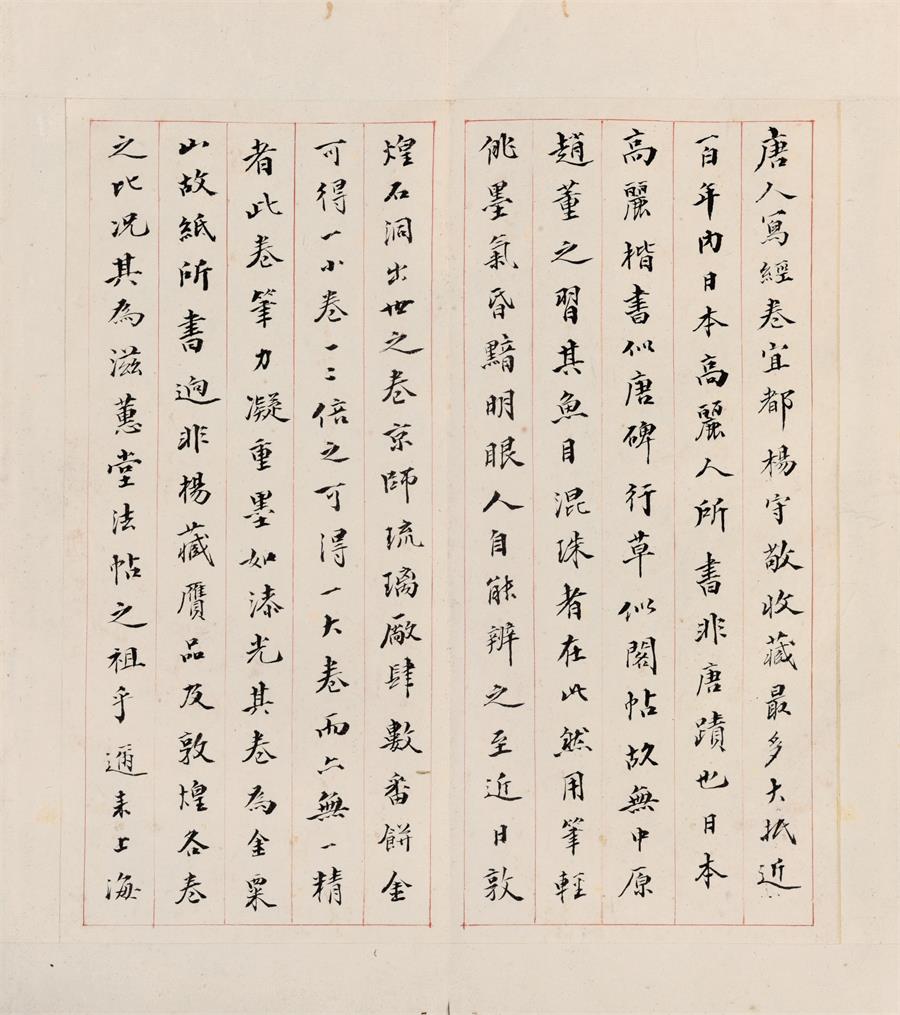 唐人寫經卷宜都楊守敬收藏最多大抵近
一百年內日本高麗人所書非唐蹟也日本
高麗楷書似唐碑行草似閣帖故無中原
趙董之習其魚目混珠者在此然用筆輕
佻墨氣昏黯明眼人自能辨之至近日敦
煌石洞出世之卷京師琉璃廠肆數番餅金
可得一小卷一二倍之可得一大卷而亦無一精
者此卷筆力凝重墨如漆光其卷為金粟
山故紙所書迥非楊藏贋品及敦煌各卷
之比况其為滋蕙堂法帖之祖乎邇來上海